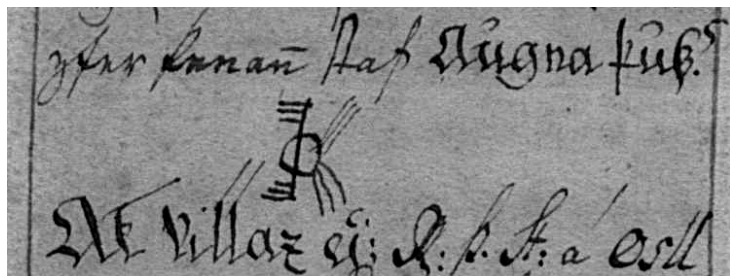 yfer þenañ staf Augna þuß.
At villaz ej: R: þ. St: á Ostl